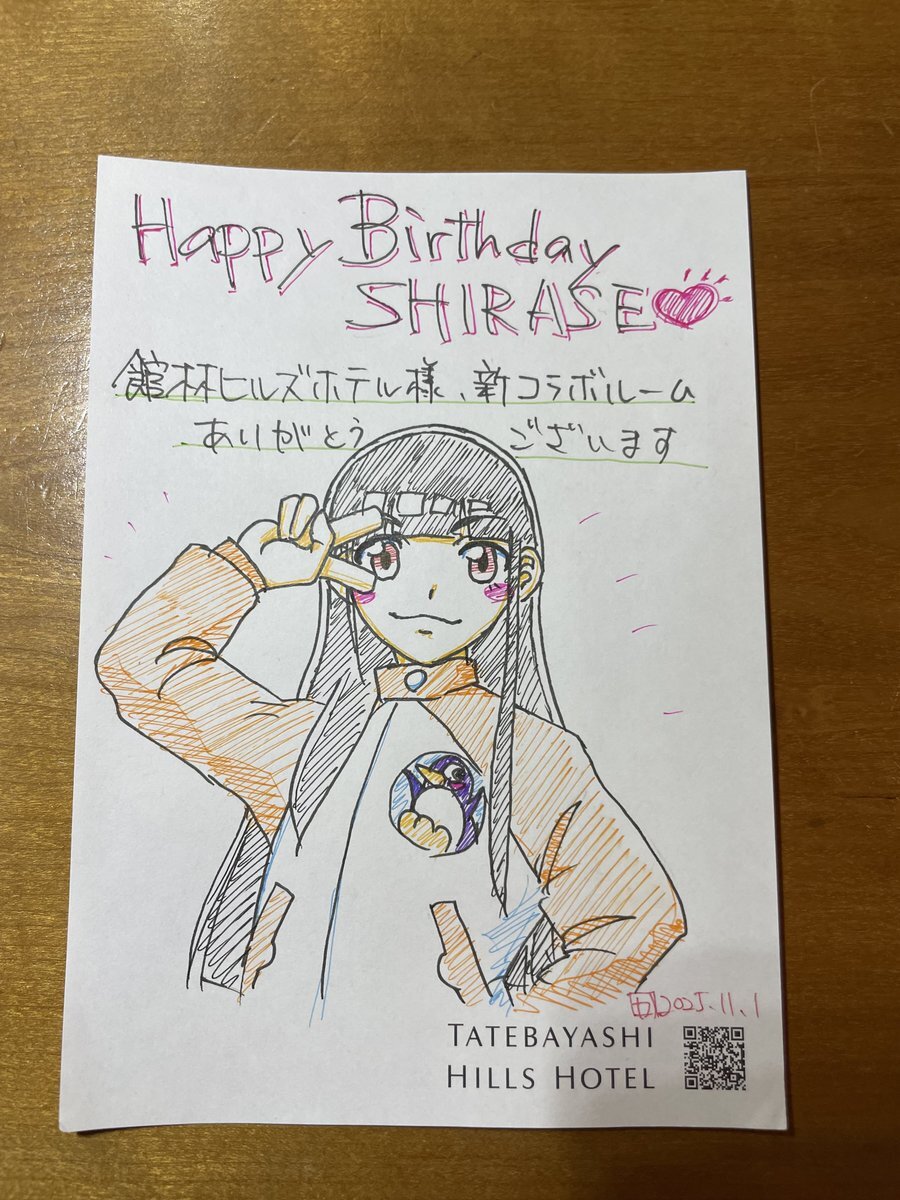 Happy Birthday
SHIRASE
館林ヒルズホテル様、新コラボルーム
ありがとう ございます
2025.11.1
TATEBAYASHI
HILLS HOTEL